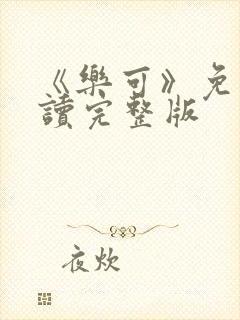 《樂可》免
讀完整版
夜炊